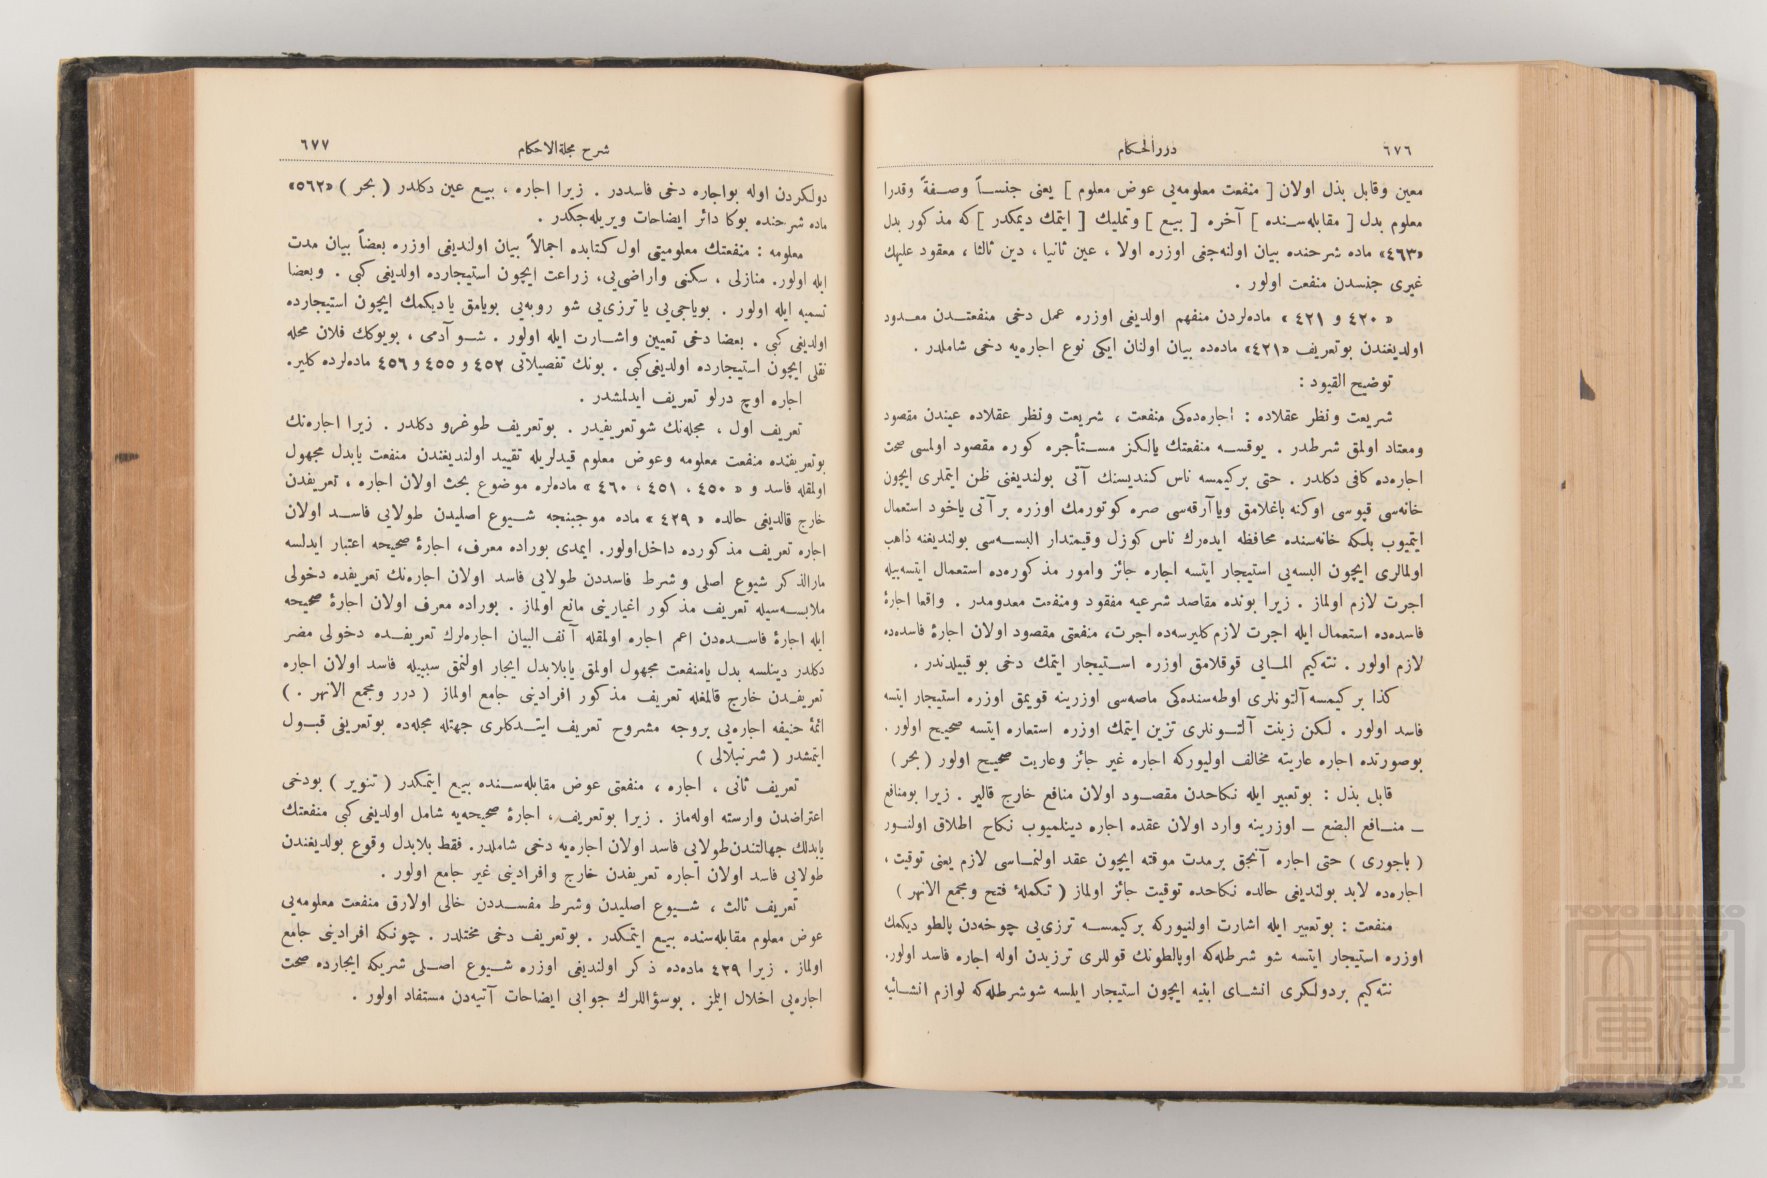 ٦٧٦
دررالحكام
معين وقابل بذل اولان [ منفعت معلومه‌يى عوض معلوم ] يعنى جنساً وصفةً وقدرا
معلوم بدل [ مقابله‌سنده ] آخره [ بيع ] وتمليك [ ايتمك ديمكدر ] كه مذكور بدل
«٤٦٣» ماده شرحنده بيان اولنه‌جغى اوزره اولا ، عين ثانيا ، دين ثالثا ، معقود عليهك
غيرى جنسدن منفعت اولور .
« ٤٢٠ و ٤٢١ » ماده‌لردن منفهم اولديغى اوزره عمل دخى منفعتدن معدود
اولديغندن بوتعريف «٤٢١» ماده‌ده بيان اولنان ايكى نوع اجاره‌يه دخى شاملدر .
توضيح القيود :
شريعت ونظر عقلاده : اجاره‌ده‌كى منفعت ، شريعت ونظر عقلاده عيندن مقصود
ومعتاد اولمق شرطدر . يوقسه منفعتك يالكز مستأجره كوره مقصود اولمسى صحت
اجاره‌ده كافى دكلدر . حتى بركيمسه ناس كنديسنك آتى بولنديغنى ظن ايتملرى ايچون
خانه‌سى قپوسى اوكنه باغلامق ويا آرقه‌سى صره كوتورمك اوزره بر آتى ياخود استعمال
ايتميوب بلكه خانه‌سنده محافظه ايده‌رك ناس كوزل وقيمتدار البسه‌سى بولنديغنه ذاهب
اولمالرى ايچون البسه‌يى استيجار ايتسه اجاره جائز وامور مذكوره‌ده استعمال ايتسه‌بيله
اجرت لازم اولماز . زيرا بونده مقاصد شرعيه مفقود ومنفعت معدومدر . واقعا اجارۀ
فاسده‌ده استعمال ايله اجرت لازم كليرسه‌ده اجرت، منفعتى مقصود اولان اجارۀ فاسده‌ده
لازم اولور . نته‌كيم المايى قوقلامق اوزره استيجار ايتمك دخى بو قبيلدندر .
كذا بر كيمسه آلتونلرى اوطه‌سنده‌كى ماصه‌سى اوزرينه قويمق اوزره استيجار ايتسه
فاسد اولور . لكن زينت آلتونلرى تزين ايتمك اوزره استعاره ايتسه صحيح اولور .
بوصورتده اجاره عاريته مخالف اوليوركه اجاره غير جائز وعاريت صحيح اولور ( بحر )
قابل بذل : بوتعبير ايله نكاحدن مقصود اولان منافع خارج قالير . زيرا بومنافع
ـ منافع البضع ـ اوزرينه وارد اولان عقده اجاره دينلميوب نكاح اطلاق اولنور
( باجورى ) حتى اجاره آنجق برمدت موقته ايچون عقد اولنماسى لازم يعنى توقيت ،
اجاره‌ده لابد بولنديغى حالده نكاحده توقيت جائز اولماز ( تكملۀ فتح ومجمع الانهر )
منفعت : بوتعبير ايله اشارت اولنيوركه بركيمسه ترزى‌يى چوخه‌دن پالطو ديكمك
اوزره استيجار ايتسه شو شرطله‌كه اوپالطونك قوللرى ترزيدن اوله اجاره فاسد اولور.
نته‌كيم بردولكرى انشاى ابنيه ايچون استيجار ايلسه شوشرطله‌كه لوازم انشائيه
شرح مجلةالاحكام
٦٧٧
دولكردن اوله بواجاره دخى فاسددر . زيرا اجاره ، بيع عين دكلدر ( بحر ) «٥٦٢»
ماده شرحنده بوكا دائر ايضاحات ويريله‌جكدر .
معلومه : منفعتك معلوميتى اول كتابده اجمالاً بيان اولنديغى اوزره بعضاً بيان مدت
ايله اولور. منازلى ، سكنى واراضى‌يى، زراعت ايچون استيجارده اولديغى كبى . وبعضا
تسميه ايله اولور . بوياجى‌يى يا ترزى‌يى شو روبه‌يى بويامق ياديكمك ايچون استيجارده
اولديغى كبى . بعضا دخى تعيين واشارت ايله اولور . شو آدمى ، بويوكك فلان محله
نقلى ايچون استيجارده اولديغى‌كبى . بونك تفصيلاتى ٤٥٢ و ٤٥٥ و ٤٥٦ ماده‌لرده كلير.
اجاره اوچ درلو تعريف ايدلمشدر .
تعريف اول ، مجله‌نك شوتعريفيدر . بوتعريف طوغرو دكلدر . زيرا اجاره‌نك
بوتعريفنده منفعت معلومه وعوض معلوم قيدلريله تقييد اولنديغندن منفعت يابدل مجهول
اولمقله فاسد و « ٤٥٠ ، ٤٥١ ، ٤٦٠ » ماده‌لره موضوع بحث اولان اجاره ، تعريفدن
خارج قالديغى حالده « ٤٢٩ » ماده موجبنجه شيوع اصليدن طولايى فاسد اولان
اجاره تعريف مذكورده داخل‌اولور. ايمدى بوراده معرف، اجارۀ صحيحه اعتبار ايدلسه
مارالذكر شيوع اصلى وشرط فاسددن طولايى فاسد اولان اجاره‌نك تعريفده دخولى
ملابسه‌سيله تعريف مذكور اغيارينى مانع اولماز . بوراده معرف اولان اجارۀ صحيحه
ايله اجارۀ فاسده‌دن اعم اجاره اولمقله آنف البيان اجاره‌لرك تعريفده دخولى مضر
دكلدر دينلسه بدل يامنفعت مجهول اولمق يابلابدل ايجار اولنمق سببيله فاسد اولان اجاره
تعريفدن خارج قالمغله تعريف مذكور افرادينى جامع اولماز ( درر ومجمع الانهر . )
ائمۀ حنيفه اجاره‌يى بروجه مشروح تعريف ايتدكلرى جهتله مجله‌ده بوتعريفى قبول
ايتمشدر ( شرنبلالى )
تعريف ثانى ، اجاره ، منفعتى عوض مقابله‌سنده بيع ايتمكدر ( تنوير ) بودخى
اعتراضدن وارسته اوله‌ماز . زيرا بوتعريف، اجارۀ صحيحه‌يه شامل اولديغى كبى منفعتك
يابدلك جهالتندن‌طولايى فاسد اولان اجاره‌يه دخى شاملدر. فقط بلابدل وقوع بولديغندن
طولايى فاسد اولان اجاره تعريفدن خارج وافرادينى غير جامع اولور .
تعريف ثالث ، شيوع اصليدن وشرط مفسددن خالى اولارق منفعت معلومه‌يى
عوض معلوم مقابله‌سنده بيع ايتمكدر . بوتعريف دخى مختلدر . چونكه افرادينى جامع
اولماز . زيرا ٤٣٩ ماده‌ده ذكر اولنديغى اوزره شيوع اصلى شريكه ايجارده صحت
اجاره‌يى اخلال ايلمز . بوسؤاللرك جوابى ايضاحات آتيه‌دن مستفاد اولور .
TOYO BUNKO